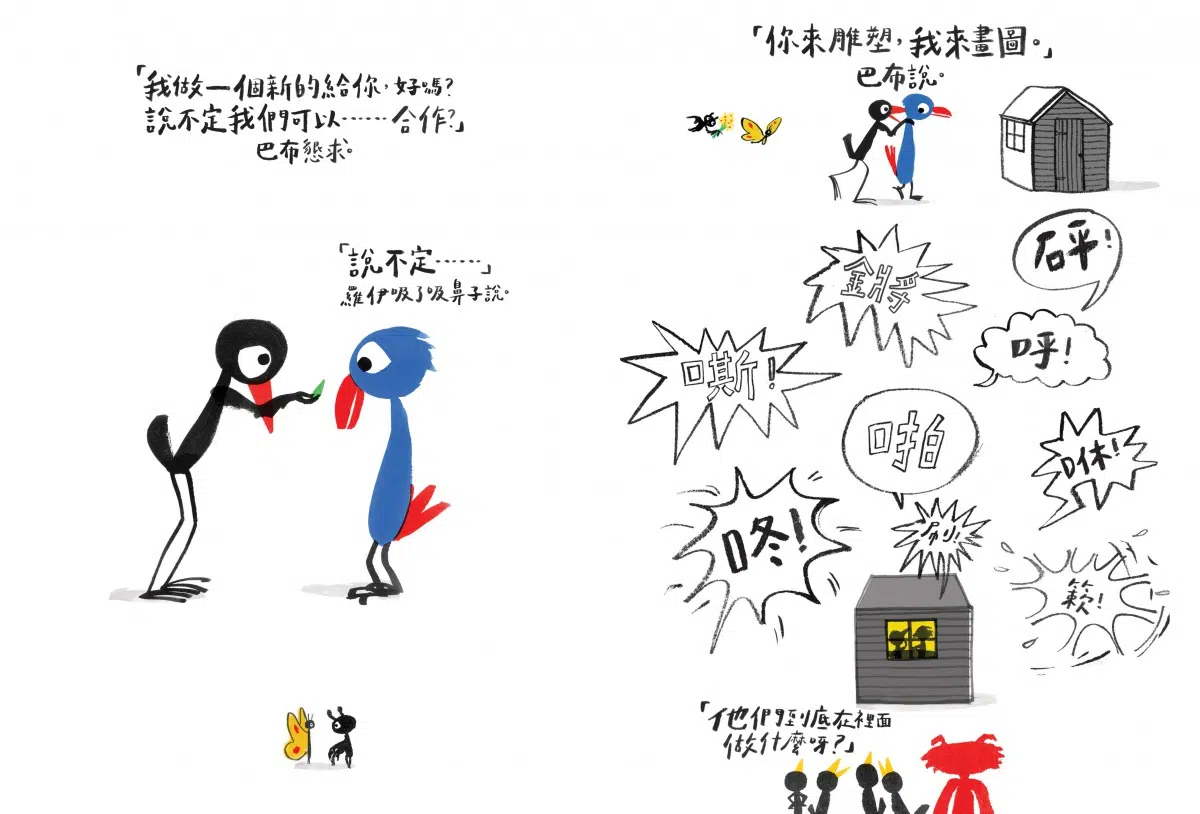 「我做一個新的給你，好嗎？
說不定我們可以……合作？」
巴布懇求。
「說不定……」
羅伊吸了吸鼻子說。
「你來雕塑，我來畫圖。」
巴布說。
砰！
鏘
呼！
嘶！
啪
咻！
咚！
刷！
簌！
「他們到底在裡面
做什麼呀？」